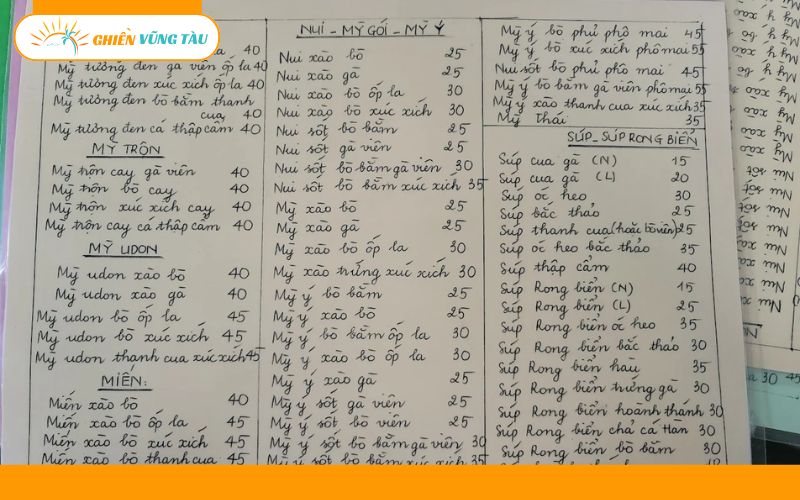 GHIỀN VŨNG TÀU
la 40
Mỳ tương đen gà viên ốp la 40
Mỳ tương đen xúc xích ốp la 40
Mỳ tương đen bò bằm thanh
cua 40
Mỳ tương đen cá thập cẩm 40
MỲ TRỘN
Mỳ trộn cay gà viên 40
Mỳ trộn bò cay 40
Mỳ trộn xúc xích cay 40
Mỳ trộn cay cá thập cẩm 40
MỲ UDON
Mỳ udon xào bò 40
Mỳ udon xào gà 40
Mỳ udon bò ốp la 45
Mỳ udon bò xúc xích 45
Mỳ udon thanh cua xúc xích 45
MIẾN:
Miến xào bò 40
Miến xào bò ốp la 45
Miến xào bò xúc xích 45
Miến xào bò thanh cua 45
NUI - MỲ GÓI - MỲ Ý
Nui xào bò 25
Nui xào gà 25
Nui xào bò ốp la 30
Nui xào bò xúc xích 30
Nui sốt bò bằm 25
Nui sốt gà viên 25
Nui sốt bò bằm gà viên 30
Nui sốt bò bằm xúc xích 35
Mỳ xào bò 25
Mỳ xào gà 25
Mỳ xào bò ốp la 30
Mỳ xào trứng xúc xích 30
Mỳ ý bò bằm 25
Mỳ ý xào bò 25
Mỳ ý bò bằm ốp la 30
Mỳ ý xào bò ốp la 30
Mỳ ý xào gà 25
Mỳ ý sốt gà viên 25
Mỳ ý sốt bò viên 25
Mỳ ý sốt bò bằm gà viên 30
Mỳ ý sốt bò bằm xúc xích 35
Mỳ ý bò phủ phô mai 45
Mỳ ý bò xúc xích phô mai 55
Nui sốt bò phủ phô mai 45
Mỳ ý bò bằm gà viên phô mai 55
Mỳ ý xào thanh cua xúc xích 35
Mỳ Thái 35
SÚP - SÚP RONG BIỂN
Súp cua gà (N) 15
Súp cua gà (L) 20
Súp óc heo 30
Súp bắc thảo 25
Súp thanh cua (hoặc bò viên) 25
Súp óc heo bắc thảo 35
Súp thập cẩm 40
Súp Rong biển (N) 15
Súp Rong biển (L) 25
Súp Rong biển óc heo 35
Súp Rong biển bắc thảo 30
Súp Rong biển hàu 35
Súp Rong biển trứng gà 30
Súp Rong biển hoành thánh 30
Súp Rong biển chả cá Hàn 30
Súp Rong biển bò bằm 30